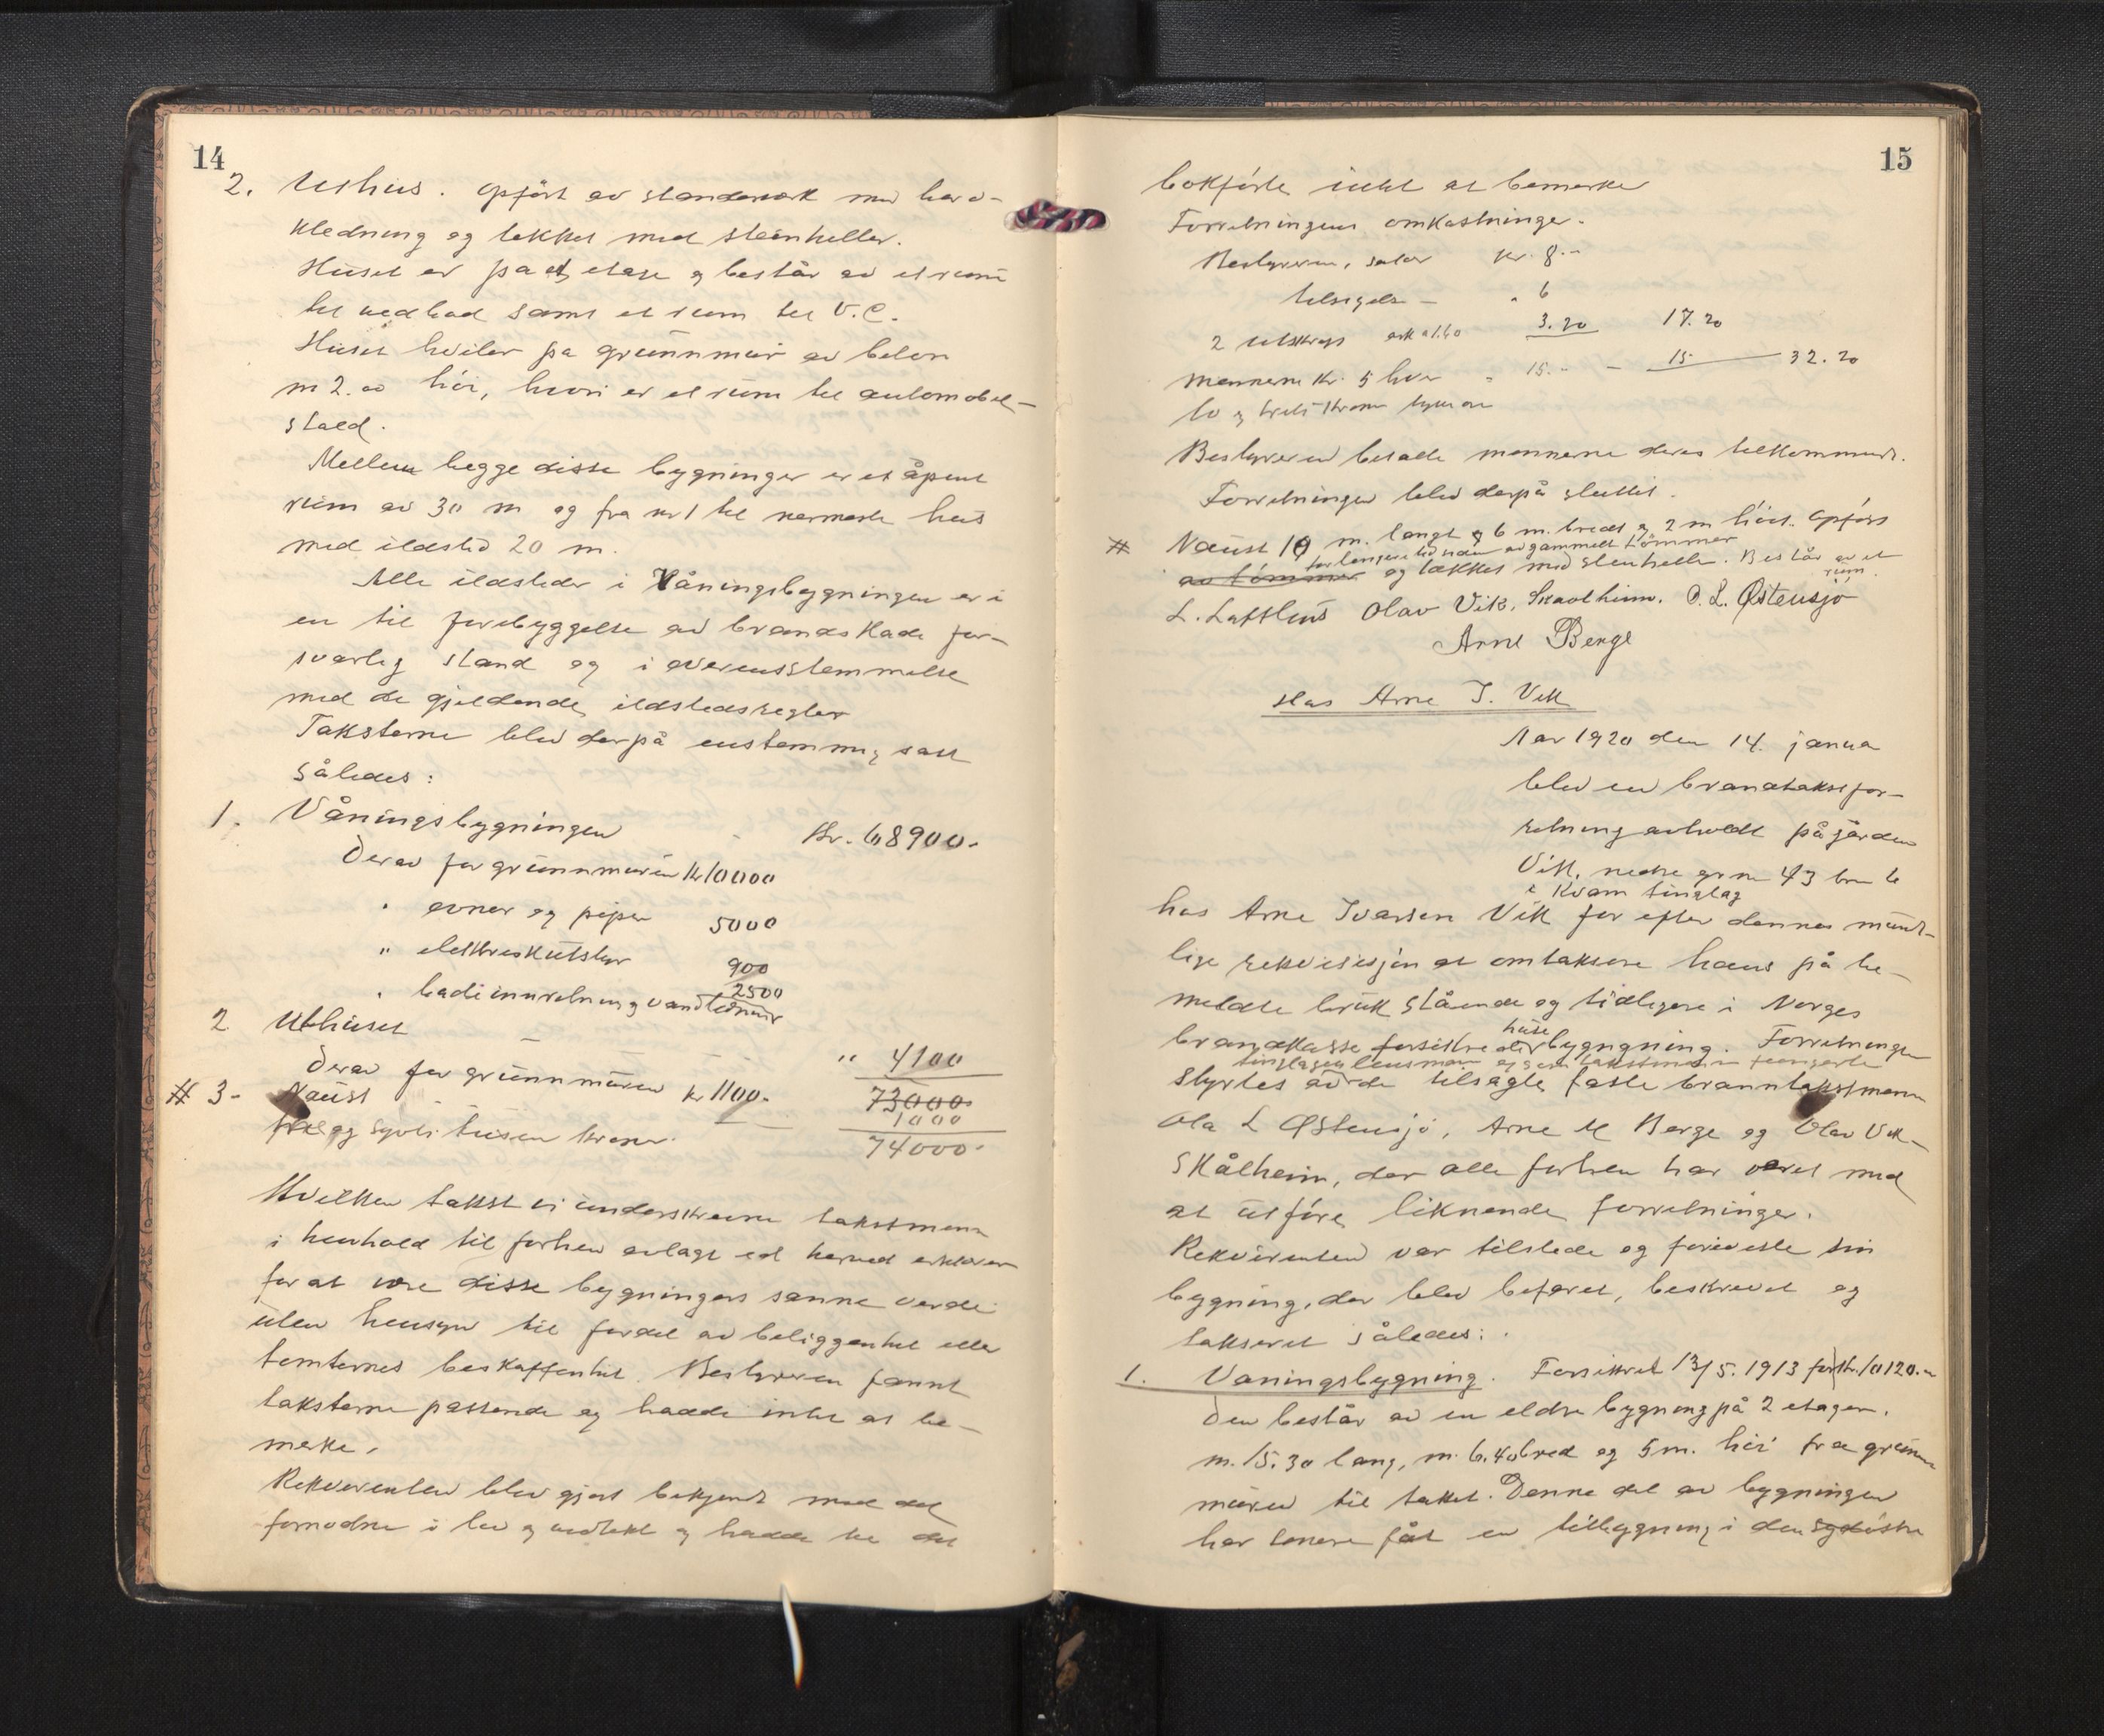 14
2. Uthus. Opført av standerverk med bord-
kledning og tekket med steinheller.
Huset er på et etase og består av et rum
til vedbod samt et rum til V.C.
Huset hviler på grunnmur av beton
m 2.00 høi, hvori er et rum til automobil-
stald.
Mellem begge disse bygninger er et åpent
rum av 30 m og fra nr 1 til nermeste hus
med ildsted 20 m.
Alle ildsteder i Våningsbygningen er i
en til forebyggelse av brandskade for-
svarlig stand og i overensstemmelse
med de gjeldende ildstedsregler
Taksterne blev derpå enstemmig satt
således:
1. Våningsbygningen - Kr. 68900.-
Derav for grunnmuren kr 10000
" ovner og piper 5000
" elektriskutstyr 900
" badeinnretning og vandledninger 2500
2 Uthuset - - " 4100
Derav for grunnmuren kr 1100.- 73000.
# 3- Naust 1000
og sytti tusen kroner. 74000.-
Hvilken takst vi underskrevne takstmenn
i henhold til forhen avlagt ed herved erklærer
for at være disse bygningers sanne verdi
uten hensyn til fordel av beliggenhet eller
tomternes beskaffenhet. Bestyreren fannt
taksterne passende og hadde intet at be-
merke.
Rekvirenten blev gjort bekjendt med det
fornødne i lov og vedtekt og hadde til det
15
bokførte intet at bemerke
Forretningens omkostninger.
Bestyreren, salær kr. 8.-
tilsigelse - " 6
2 utskrifts ark a 1.60 3.20 17.20
Mennerne kr. 5 hver " 15.- - 15- 32.20
to og tretti kroner tyve øre
Bestyreren betalte mennerne deres tilkommende.
Forretningen blev derpå sluttet.
# Naust 10 m. langt og 6 m. bredt og 2 m høit. Opført
for lengere tid siden av gammelt tømmer
av tømmer og tækket med stenheller. Består av et
rum.
L. Lofthus Olav Vik, Skaalheim. O. L. Østensjø
Arne Berge
Hos Arne I. Vik
Aar 1920 den 14. januar
blev en brandtakstfor-
retning avholdt på gården
Vik, nedre gr nr 43 br nr 6
i Kvam tinglag
hos Arne Ivarsen Vik for efter dennes munt-
lige rekvisisjon at omtaksere hans på be-
meldte bruk stående og tidligere i Norges
brandkasse forsikrede bygning. Forretningen
hus
tinglagets lensman og som takstmenn fungerte
Styrtes av de tilsagte faste branntakstmenn
Ola L Østensjø, Arne M Berge og Olav Vik-
Skålheim, der alle forhen har været med
at utføre liknende forretninger.
Rekvirenten var tilstede og foreviste sin
bygning, der blev befaret, beskrevet og
takseret således:
1. Vaningsbygning. Forsikret 13/5. 1913 for kr. 10120.-
Den består av en eldre bygning på 2 etager.
m. 15.30 lang, m. 6.40 bred og 5 m. høi fra grunn
muren til taket. Denne del av bygningen
har senere fåt en tilbygning i den sydøstre